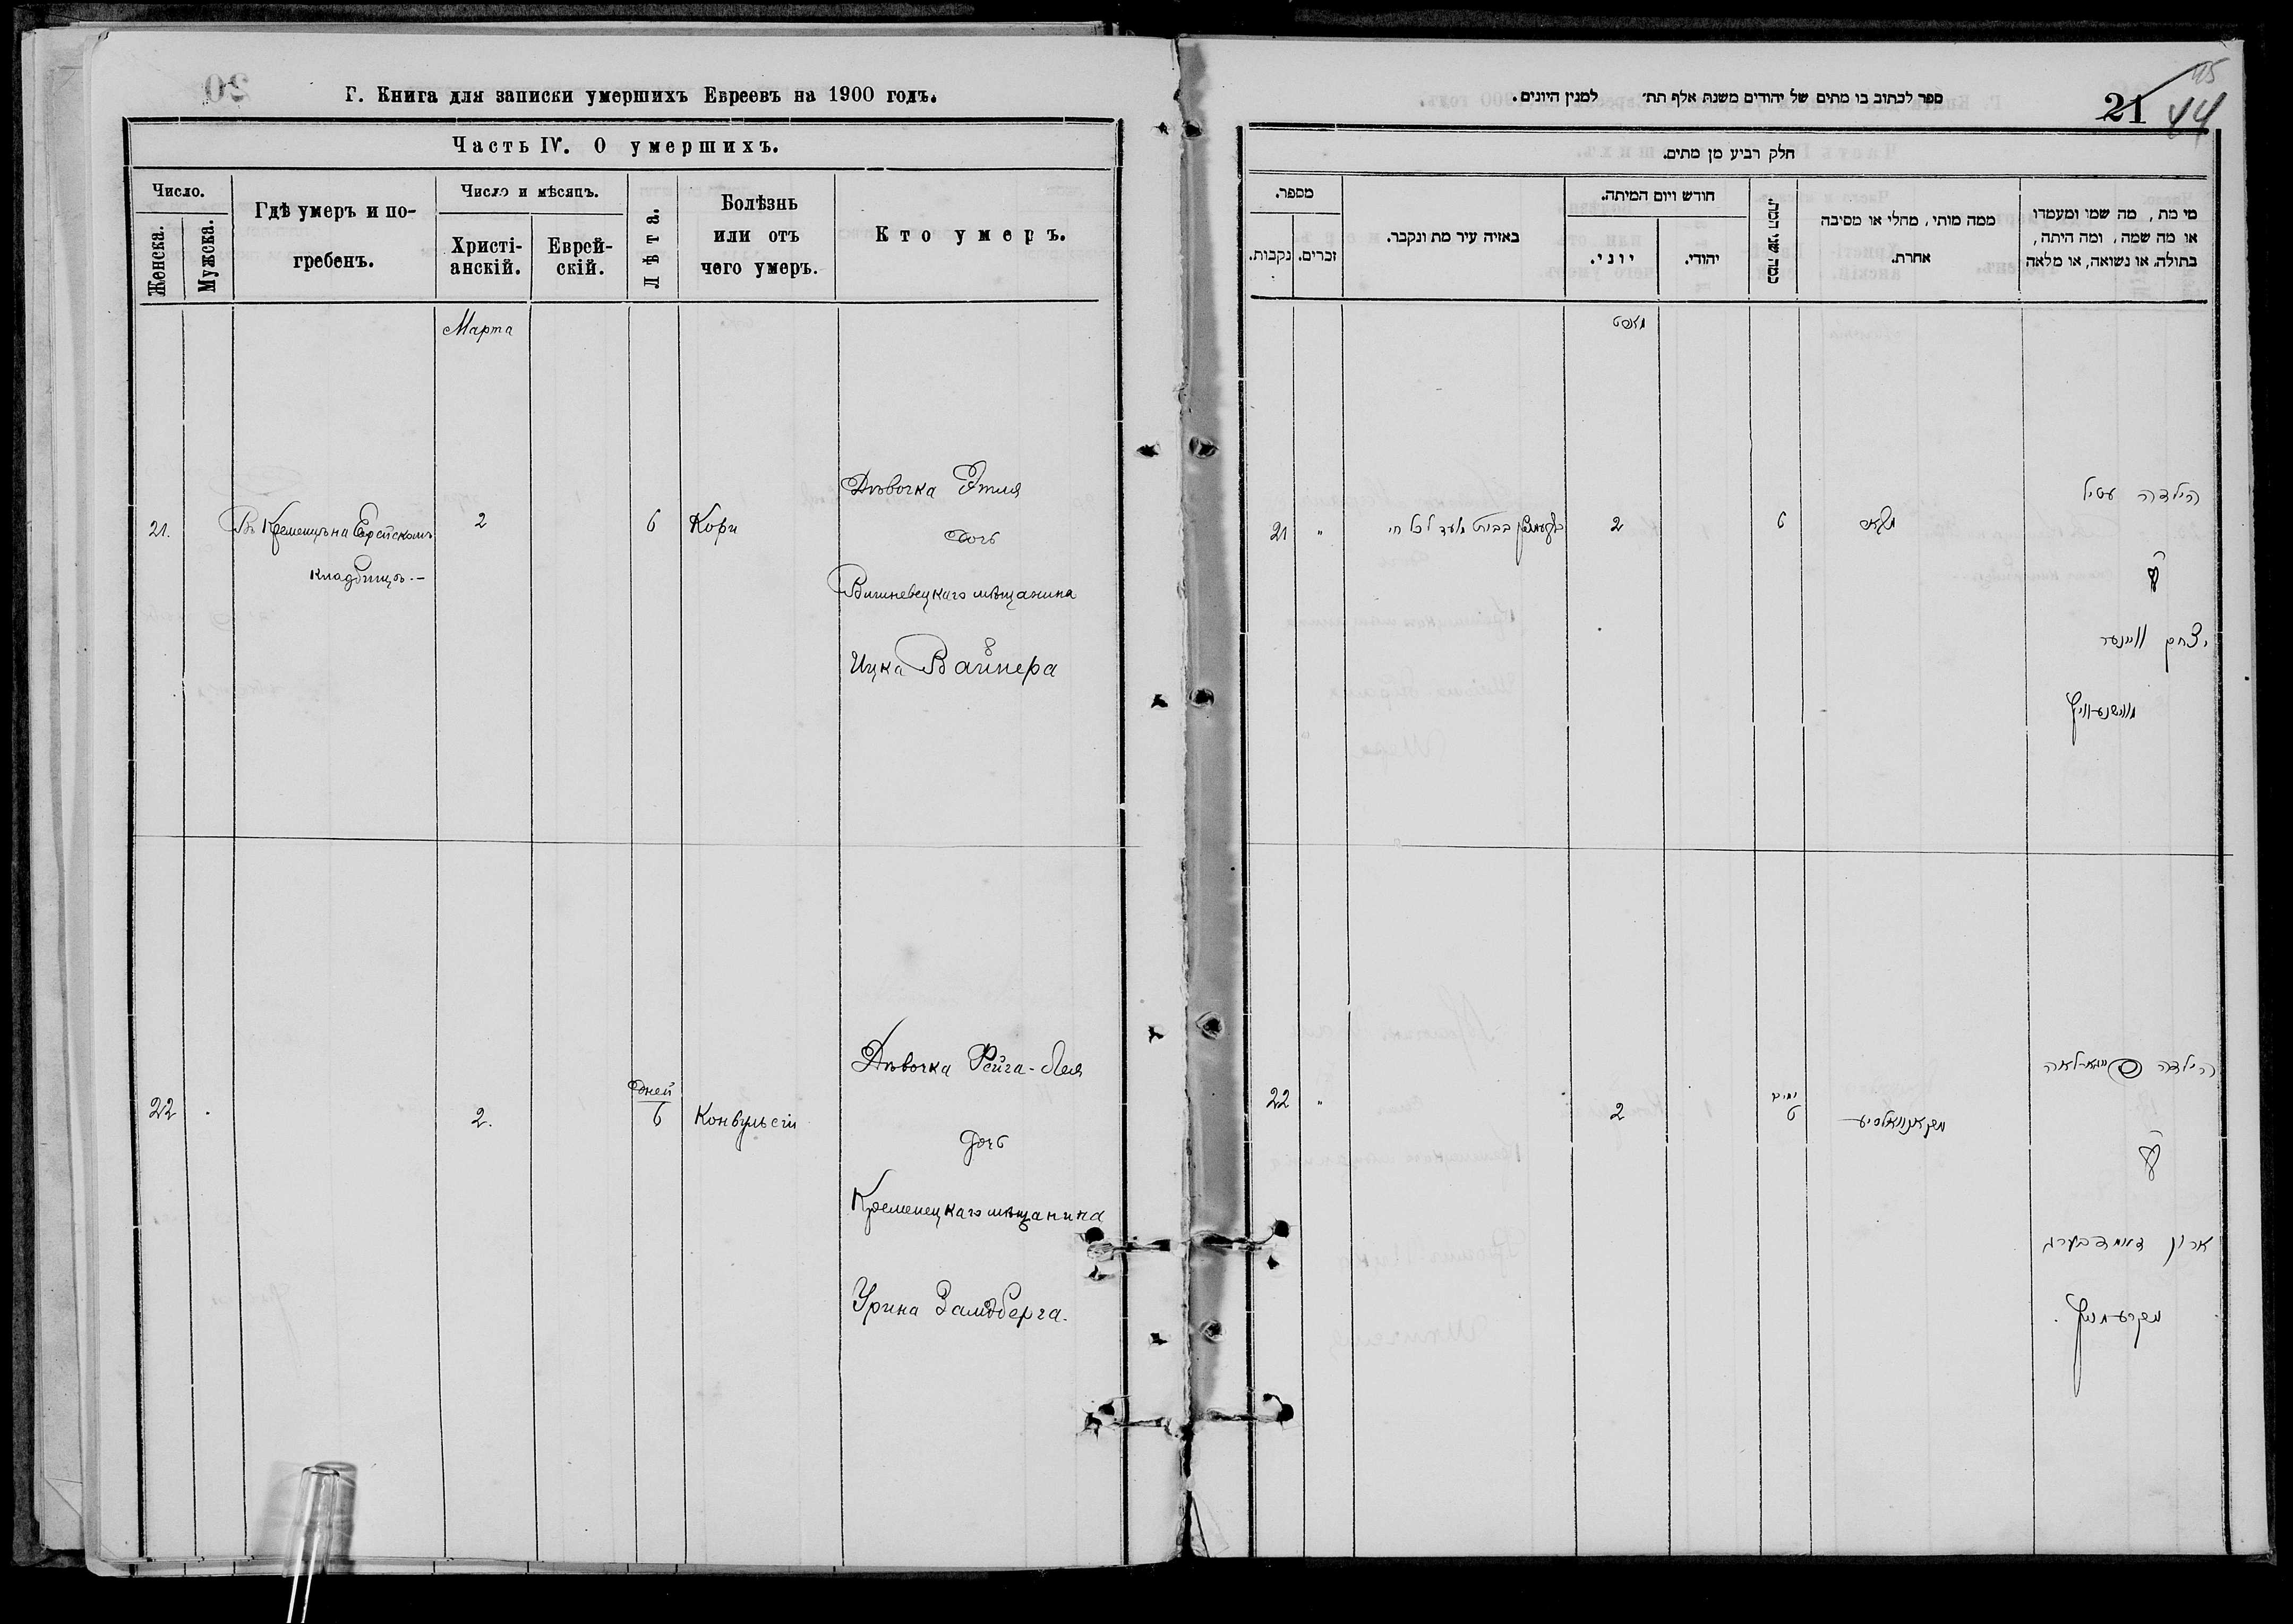 Г. Книга для записки умершихъ Евреевъ на 1900 годъ.
Часть IV. О умершихъ.
Число.
Женска.
Мужска.
Гдѣ умеръ и по-
гребенъ.
Число и мѣсяцъ.
Христі-
анскій.
Еврей-
скій.
Лѣта.
Болѣзнь
или отъ
чего умеръ.
Кто умеръ.
Марта
21.
Въ Кременцѣ на Еврейскомъ
кладбищѣ.-
2
6
Кори
Дѣвочка Этля
дочь
Вишневецкаго мѣщанина
Ицка Вайнера
22
2.
дней
6
Конвульсіи
Дѣвочка Рейга-Лея
дочь
Кременецкаго мѣщанина
Урина Замдберга.
ספר לכתוב בו מתים של יהודים משנת אלף תת׳ למנין היונים.
21
45
44
חלק רביע מן מתים.
מספר.
נקבות.
זכרים.
באזיה עיר מת ונקבר.
חודש ויום המיתה.
יוני.
יהודי.
כמה שני חיה.
ממה מותי, מחלי או מסיבה
אחרת.
מי מת, מה שמו ומעמדו
או מה שמה, ומה היתה,
בתולה, או נשואה, או מלאה
מארט
21 "
בבית מועד לכל חי
2
6
הילדה עטיל
יצחק וויינער
22 "
2
ימים
6
הילדה
לאה
ארון זאמדבערג